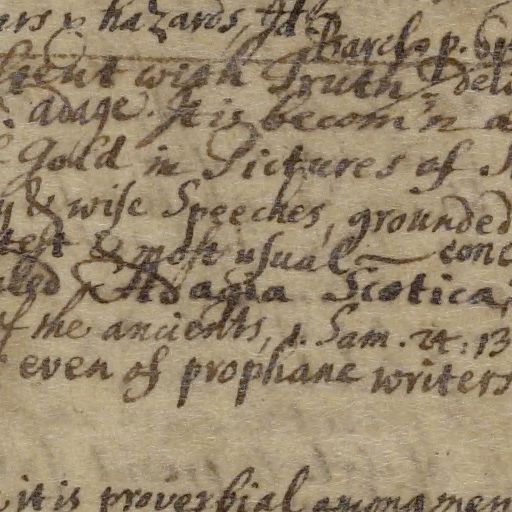 & hazards, Id:
Barclo p.
with Truth
adage. It is becom'n a
Gold in Pictures of
& wise Speeches, grounded
& most usual — conc
Adagia Scotica,
of the ancients, 1. Sam. 24. 13
even of prophane writers
it is proverbial among men